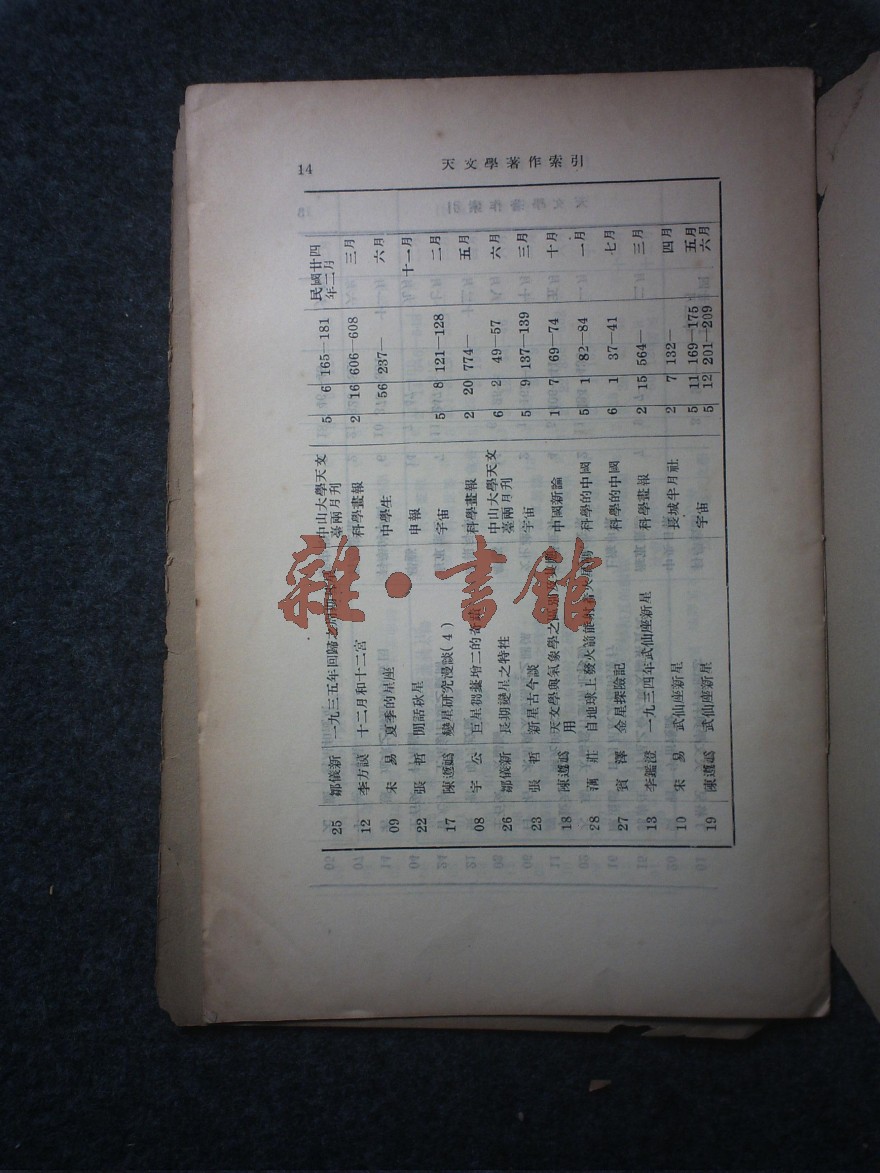 14
天文學著作索引
25 鄒儀新 一九三五年回歸 中山大學天文臺兩月刊 5 6 165—181 民國廿四年二月
12 李方謨 十二月和十二宮 科學畫報 2 16 606—608 三月
09 宋易 夏季的星座 中學生 56 237— 六月
22 張哲 閒話秋星 申報 十一月
17 陳遵嬀 變星研究漫談(4) 宇宙 5 8 121—128 二月
08 宇公 巨星 增二的奇 科學畫報 2 20 774— 五月
26 鄒儀新 長期變星之特性 中山大學天文臺兩月刊 6 2 49—57 六月
23 張哲 新星古今談 宇宙 5 9 137—139 三月
18 陳遵嬀 天文學與氣象學之 用 中國新論 1 7 69—74 十月
28 莊 自地球上發火箭能 科學的中國 5 1 82—84 一月
27 賓澤 金星探險記 科學的中國 6 1 37—41 七月
13 李鑑澄 一九三四年武仙座新星 科學畫報 2 15 564— 三月
10 宋易 武仙座新星 長城半月社 2 7 132— 四月
19 陳遵嬀 武仙座新星 宇宙 5 11 169—175 五月
5 12 201—209 六月
雜·書館